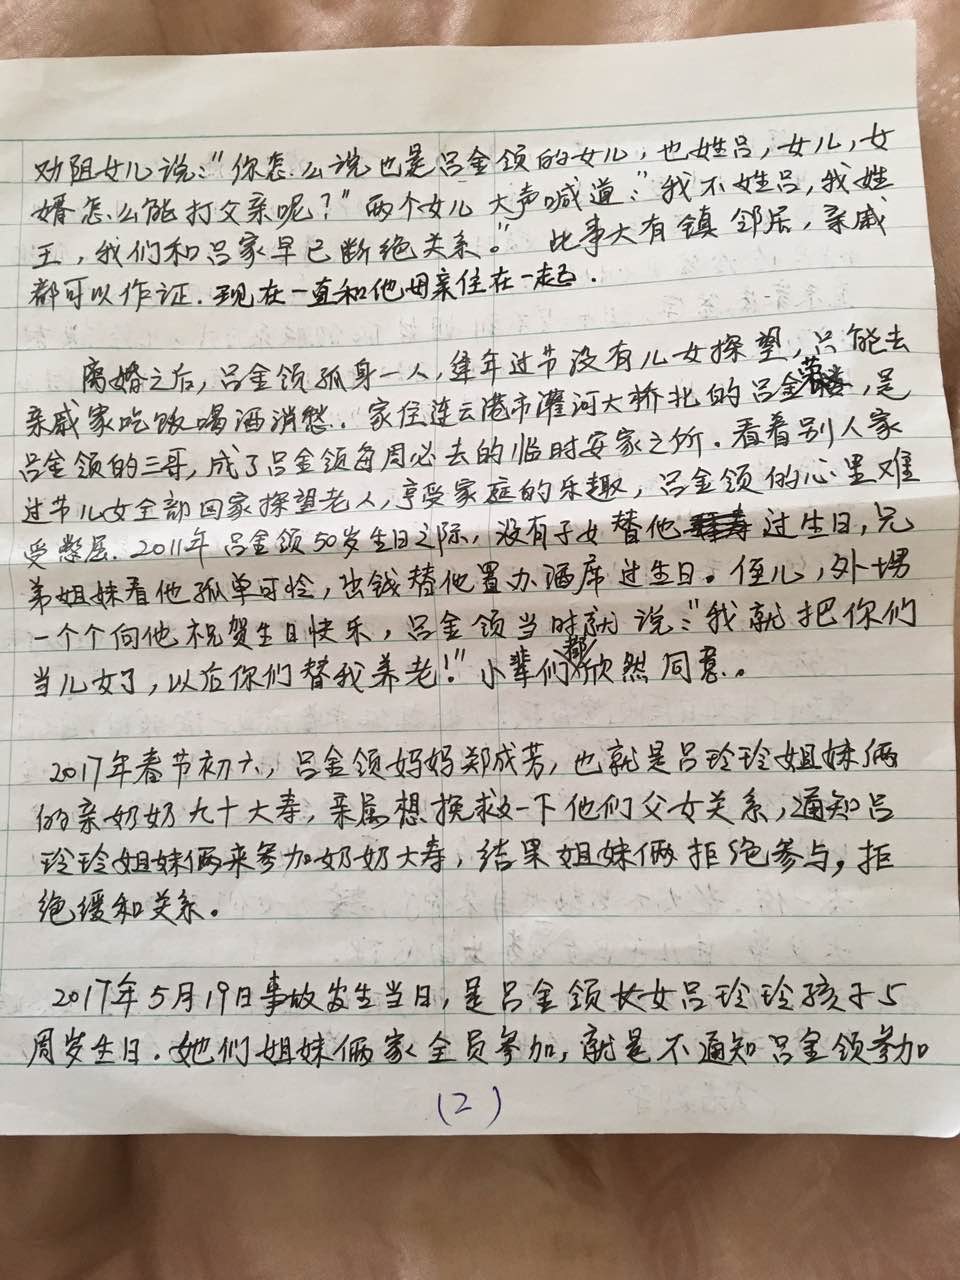 劝阻女儿说："你怎么说也是吕金领的女儿，也姓吕，女儿，女
婿怎么能打父亲呢？"两个女儿大声喊道："我不姓吕，我姓
王，我们和吕家早已断绝关系。"此事大有镇邻居，亲戚
都可以作证.现在一直和他母亲住在一起.
离婚之后，吕金领孤身一人，逢年过节没有儿女探望，只能去
亲戚家吃饭喝酒消愁.家住连云港市灌河大桥北的吕金荣，是
吕金领的三哥，成了吕金领每周必去的临时安家之所.看着别人家
过节儿女全部回家探望老人，享受家庭的乐趣，吕金领的心里难
受憋屈.2011年吕金领50岁生日之际，没有子女替他过生日，兄
弟姐妹看他孤单可怜，出钱替他置办酒席过生日。侄儿，外甥
一个个向他祝贺生日快乐，吕金领当时就说："我就把你们
当儿女了，以后你们替我养老！"小辈们都欣然同意。
2017年春节初六，吕金领妈妈郑成芳，也就是吕玲玲姐妹俩
的亲奶奶九十大寿，亲属想挽救一下他们父女关系，通知吕
玲玲姐妹俩来参加奶奶大寿，结果姐妹俩拒绝参与，拒
绝缓和关系。
2017年5月19日事故发生当日，是吕金领长女吕玲玲孩子5
周岁生日.她们姐妹俩家全员参加，就是不通知吕金领参加
(2)